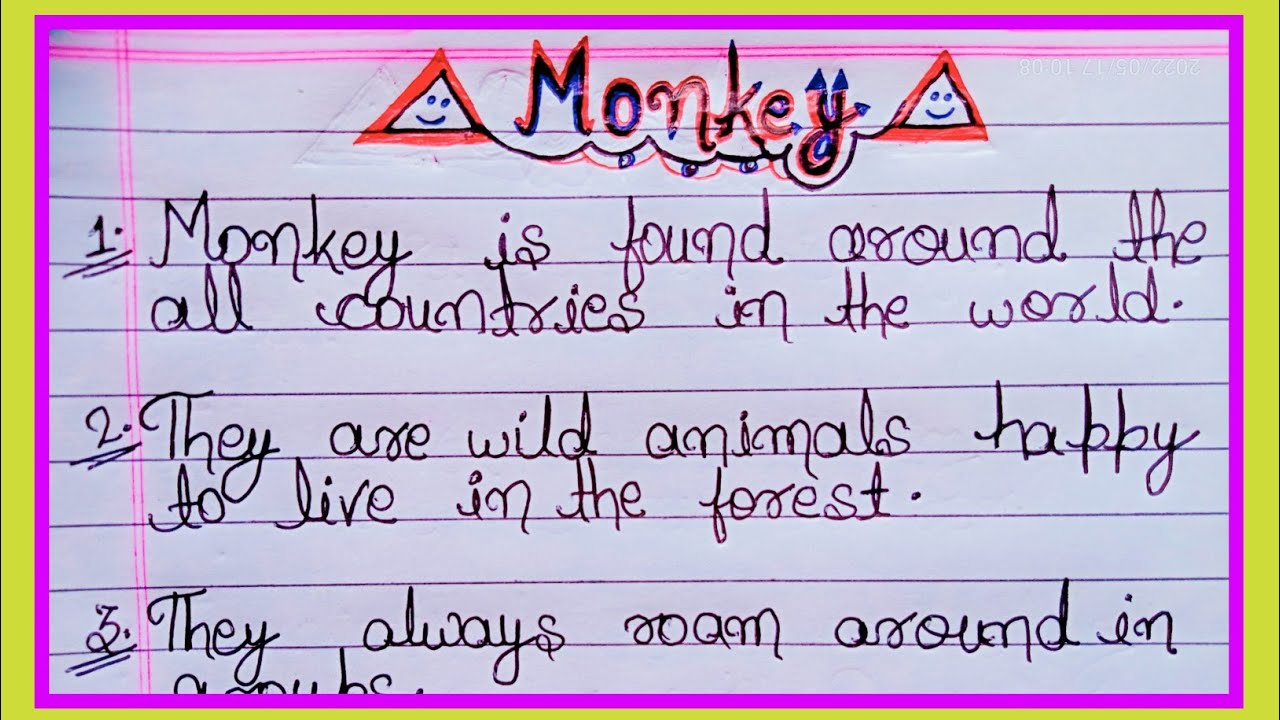 2022/05/17 10:08
Monkey
1. Monkey is found around the
all countries in the world.
2. They are wild animals happy
to live in the forest.
3. They always roam around in